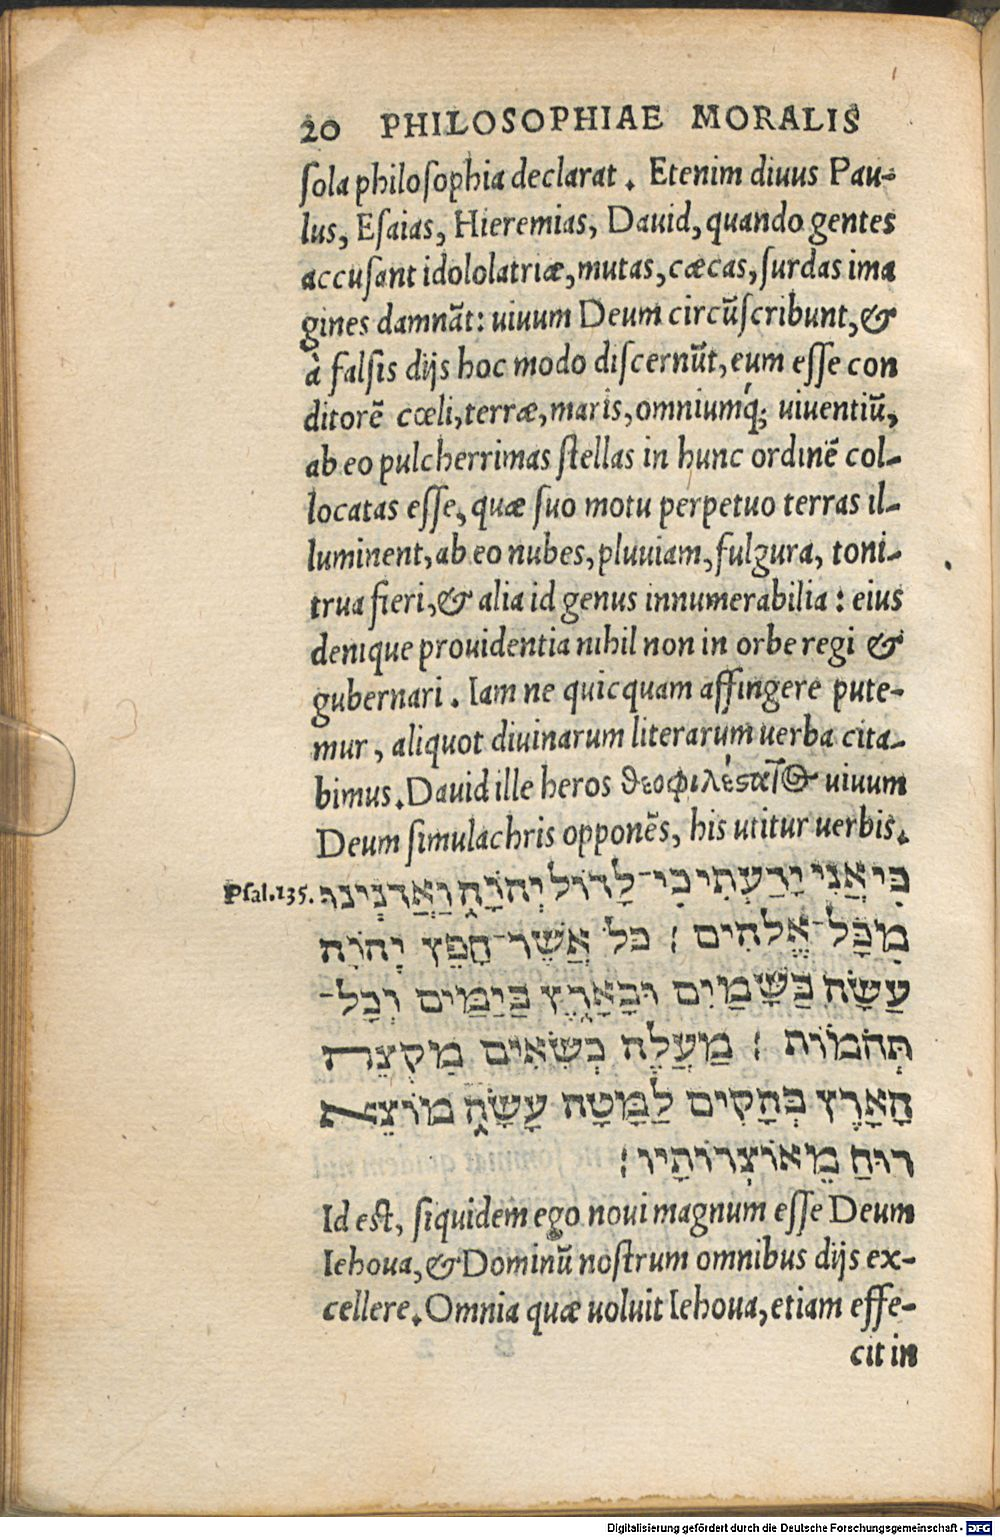 20 PHILOSOPHIAE MORALIS
sola philosophia declarat. Etenim divus Pau-
lus, Esaias, Hieremias, Dauid, quando gentes
accusant idololatriæ, mutas, cæcas, surdas ima
gines damnãt: uiuum Deum circũscribunt, &
à falsis dijs hoc modo discernũt, eum esse con
ditorẽ cœli, terræ, maris, omniumq́; uiuentiũ,
ab eo pulcherrimas stellas in hunc ordinẽ col-
locatas esse, quæ suo motu perpetuo terras il-
luminent, ab eo nubes, pluuiam, fulgura, toni-
trua fieri, & alia id genus innumerabilia: eius
denique prouidentia nihil non in orbe regi &
gubernari. Iam ne quicquam affingere pute-
mur, aliquot diuinarum literarum uerba cita-
bimus. Dauid ille heros θεοφιλέςατος uiuum
Deum simulachris opponẽs, his utitur uerbis.
Psal. 135.
כִּי אֲנִי יָדַעְתִּי כִּי־לָדוֹל יְהוָֹה וַאֲדֹנֵינוּ
מִכָּל־אֱלֹהִים ׃ כֹּל אֲשֶׁר־חָפֵץ יְהוָֹה
עַשָׂה בַּשָּׁמַיִם וּבָאָרֶץ בַּיַמִּים וְכָל־
תְּהֹמוֹת ׃ מַעֲלֶה נְשִׂאִים מִקְצֵה
הָאָרֶץ בְּרָקִים לַמָּטָר עָשָׂה מוֹצֵא
רוּחַ מֵאוֹצְרוֹתָיו ׃
Id est, siquidem ego noui magnum esse Deum
Iehoua, & Dominũ nostrum omnibus dijs ex-
cellere. Omnia quæ uoluit Iehoua, etiam effe-
cit in
Digitalisierung gefördert durch die Deutsche Forschungsgemeinschaft - DFG